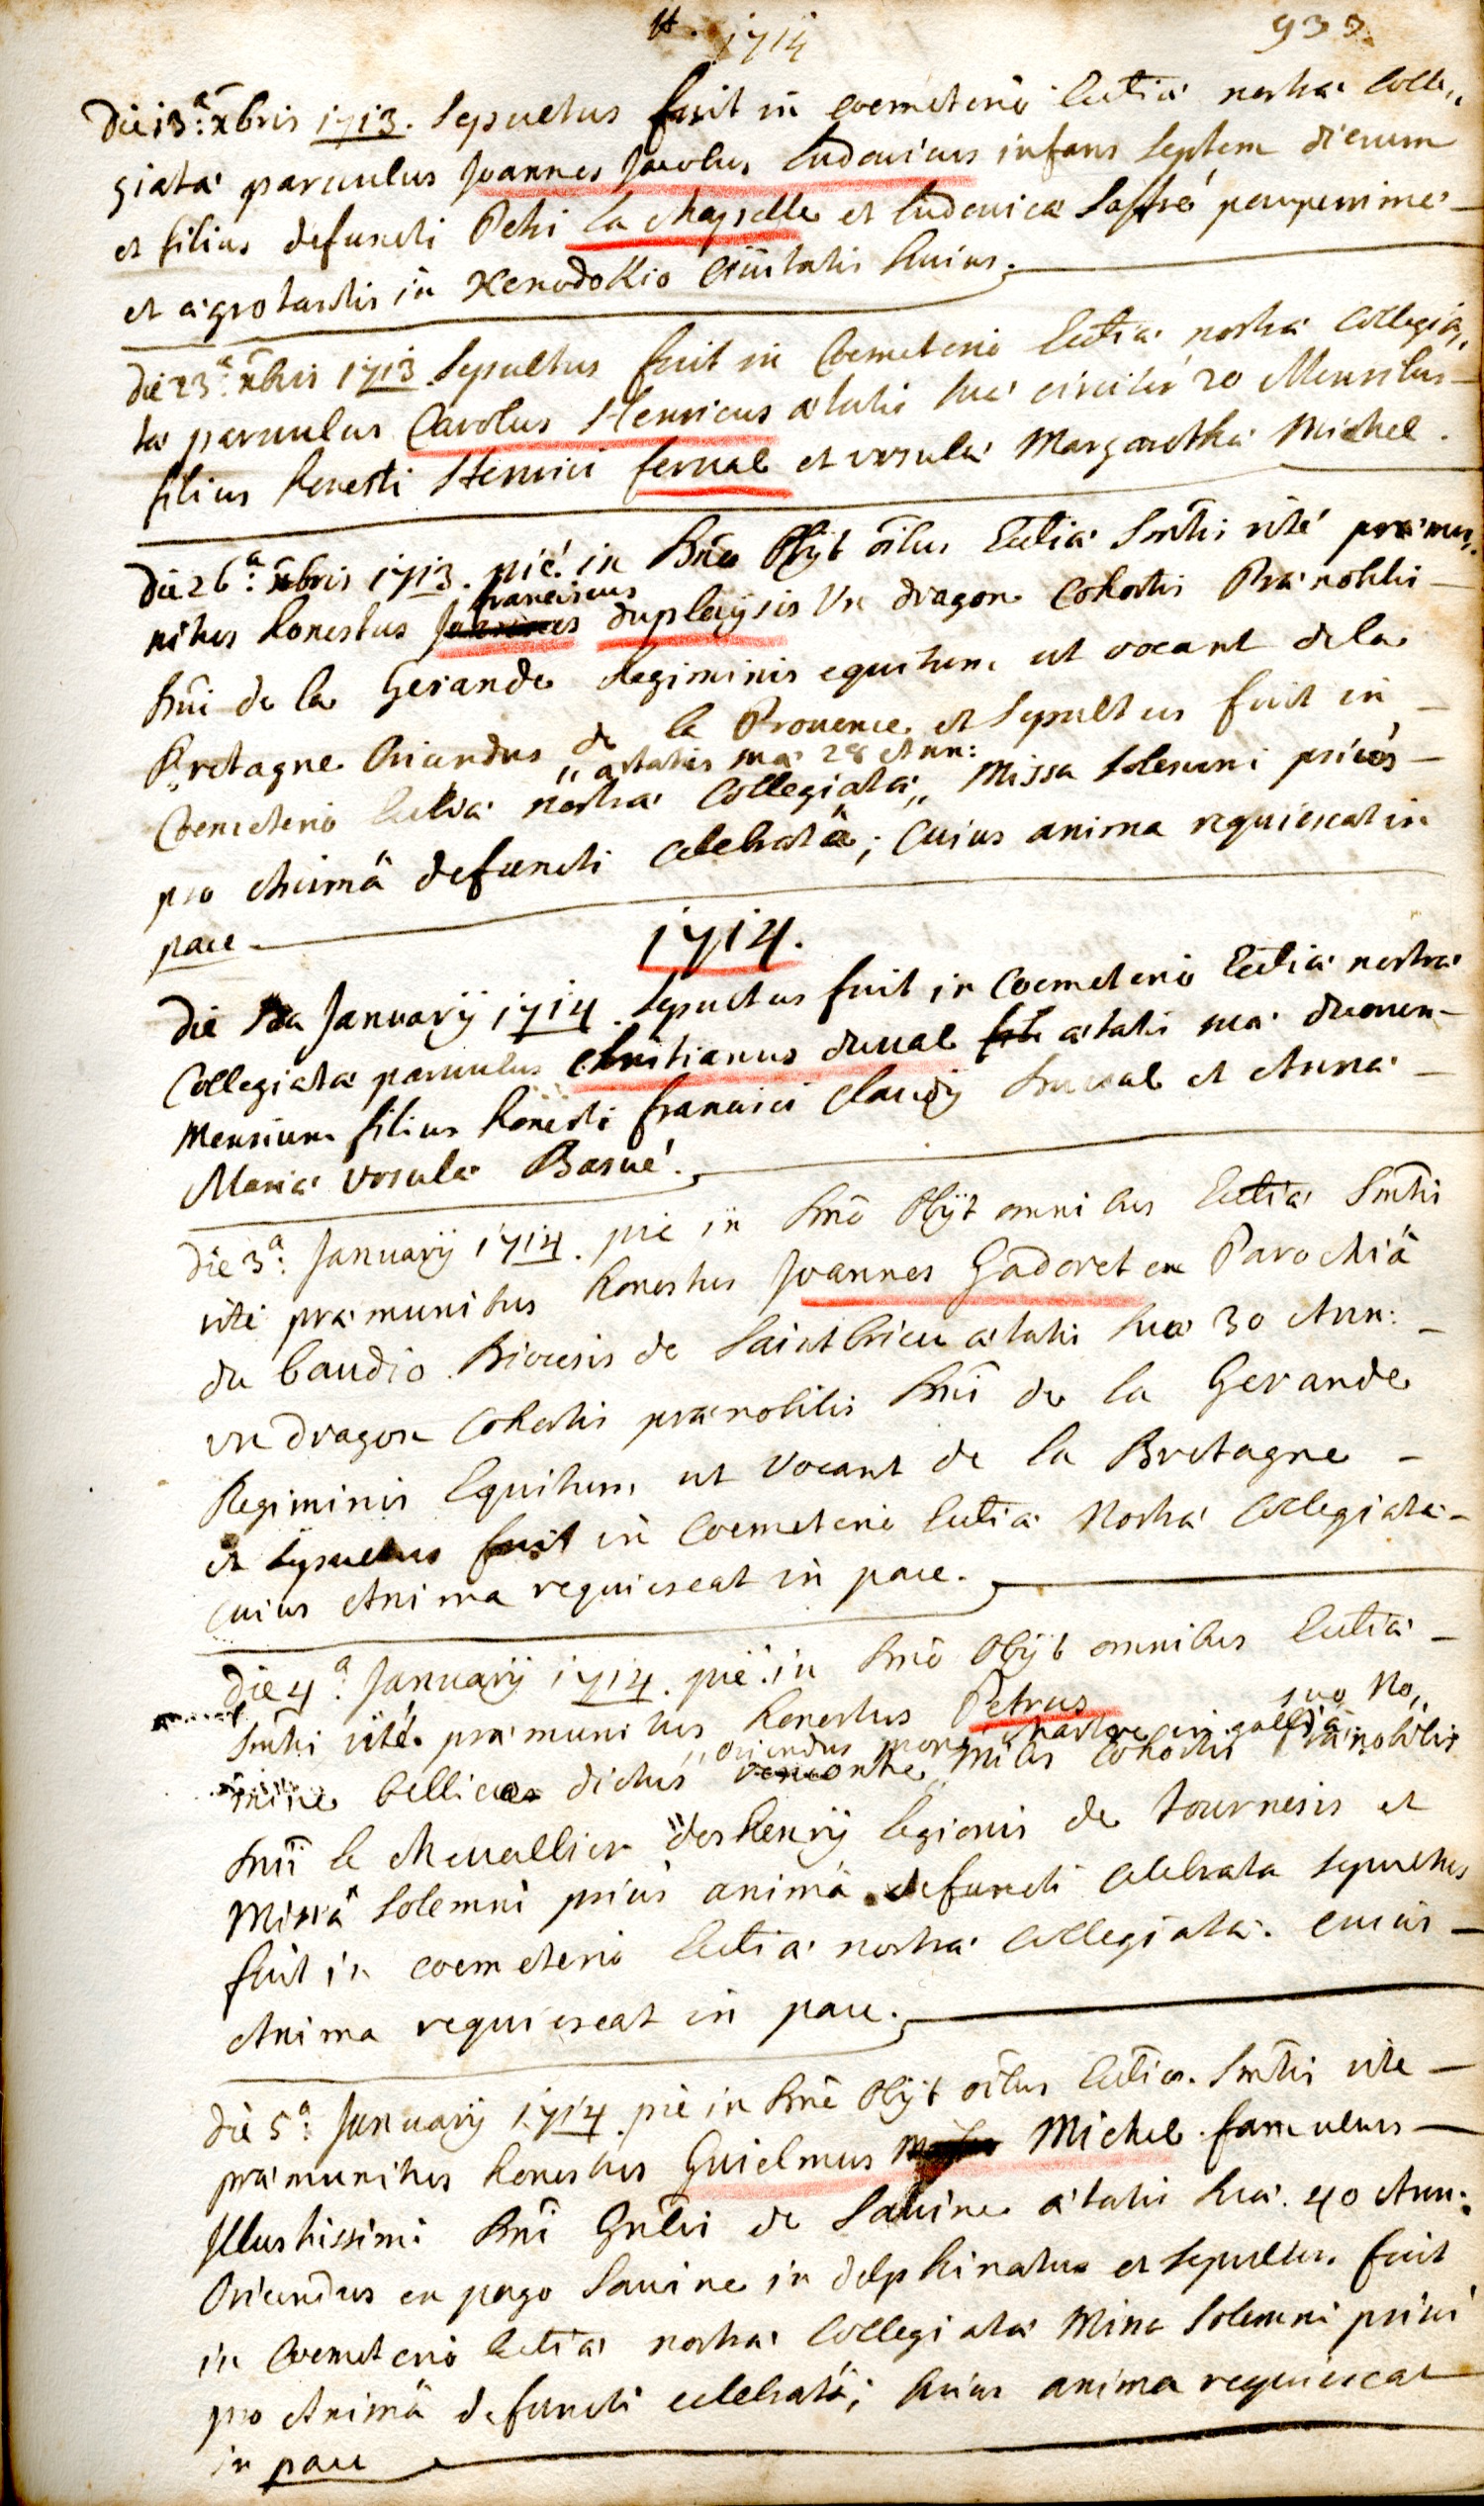 1714
933.
Die 13.ª xbris 1713. Sepultus fuit in coemeterio Eccliæ nostræ Colle„
giatæ parvulus Joannes Jacobus Ludovicus infans septem dierum
et filius defuncti Petri la chapelle et Ludovicæ Saffré pauperrimæ
et ægrotantis in Xenodokio Civitatis huius.
Die 23.ª xbris 1713 Sepultus fuit in Coemeterio Eccliæ nostræ Collegia„
tæ parvulus Carolus Henricus ætatis suæ circiter 20 Mensibus
filius honesti Henrici ferual et ursulæ Margarethæ Michel.
Die 26.ª xbris 1713. piè in Dno Obÿt oĩbus Eccliæ Smtis ritè præmu„
nitus honestus franciscus duplaÿsis Un dragon Cohortis Prænobilis
Dni de la Gerande Regiminis equitum ut vocant de la
Bretagne Oriundus de la Provence et Sepultus fuit in
„ ætatis suæ 28 Ann:
Coemeterio Eccliæ nostræ Collegiatæ „ Missa Solemni priùs
pro Animâ defuncti celebratâ; Cuius anima requiescat in
pace
1714.
Die 2da Januarÿ 1714. Sepultus fuit in Coemeterio Eccliæ nostræ
Collegiatæ parvulus Christianus duual ætatis suæ duorum
Mensium filius honesti francisci Claudÿ Duual et Annæ
Mariæ Ursulæ Basué.
Die 3.ª Januarÿ 1714. piè in Dnō Obÿt omnibus Eccliæ Smtis
ritè præmunitus honestus Joannes Gadoret ex Parochiâ
du baudio Diocesis de Saint brieu ætatis suæ 30 Ann:
un dragon Cohortis prænobilis Dni de la Gerande
Regiminis Equitum ut vocant de la Bretagne
et sepultus fuit in Coemeterio Eccliæ Nostræ Collegiatæ
cuius Anima requiescat in pace.
Die 4.ª Januarÿ 1714. piè in Dnō Obÿt omnibus Eccliæ
Smtis ritè præmunitus honestus Petrus suo No„
„ oriundus in galliâ
mine bellico dictus Miles Cohortis Prænobilis
Dni le Cheuallier deshenrÿ legionis de tournesis et
Missâ Solemni priùs animâ defuncti celebrata sepultus
fuit in coemeterio Eccliæ nostræ Collegiatæ. cuius
Anima requiescat in pace.
Die 5.ª Januarÿ 1714. piè in Dnō Obÿt oĩbus Eccliæ Smtis rite
præmunitus honestus Guielmus Michel famulus
Illustrissimi Dni Gnlis de Savine ætatis suæ 40 Ann:
Oriundus ex pago Savine in delphinatu et sepultus fuit
in Coemeterio Eccliæ nostræ Collegiatæ Missa Solemni priùs
pro Animâ defuncti celebratâ; huius anima requiescat
in pace